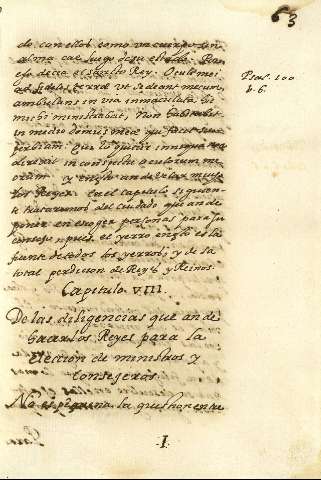 63
do con ellos como un cuerpo sin
alma cae luego
decia el Sancto Rey. Oculi mei
ad fideles terræ ut sedeant mecum
Psal. 100
v. 6
ambulans in via inmaculata hic
mihi ministrabat, Non habitabit
in medio domus meæ qui facit super
perbiam: Que lo quiere
in conspectu oculorum me
orum y en esto an de velar mucho
los Reyes. En el capitulo siguien-
te trataremos del cuidado que an de
poner en escoger personas para su
consejo pues el yerro en esto es la
fuente de todos los yerros, y de la
total perdicion de Reyes y Reinos.
Capitulo VIII.
De las diligencias que an de
hacer los Reyes para la
eleccion de ministros y
Consejeros.
No es pequena la question entre
.I.